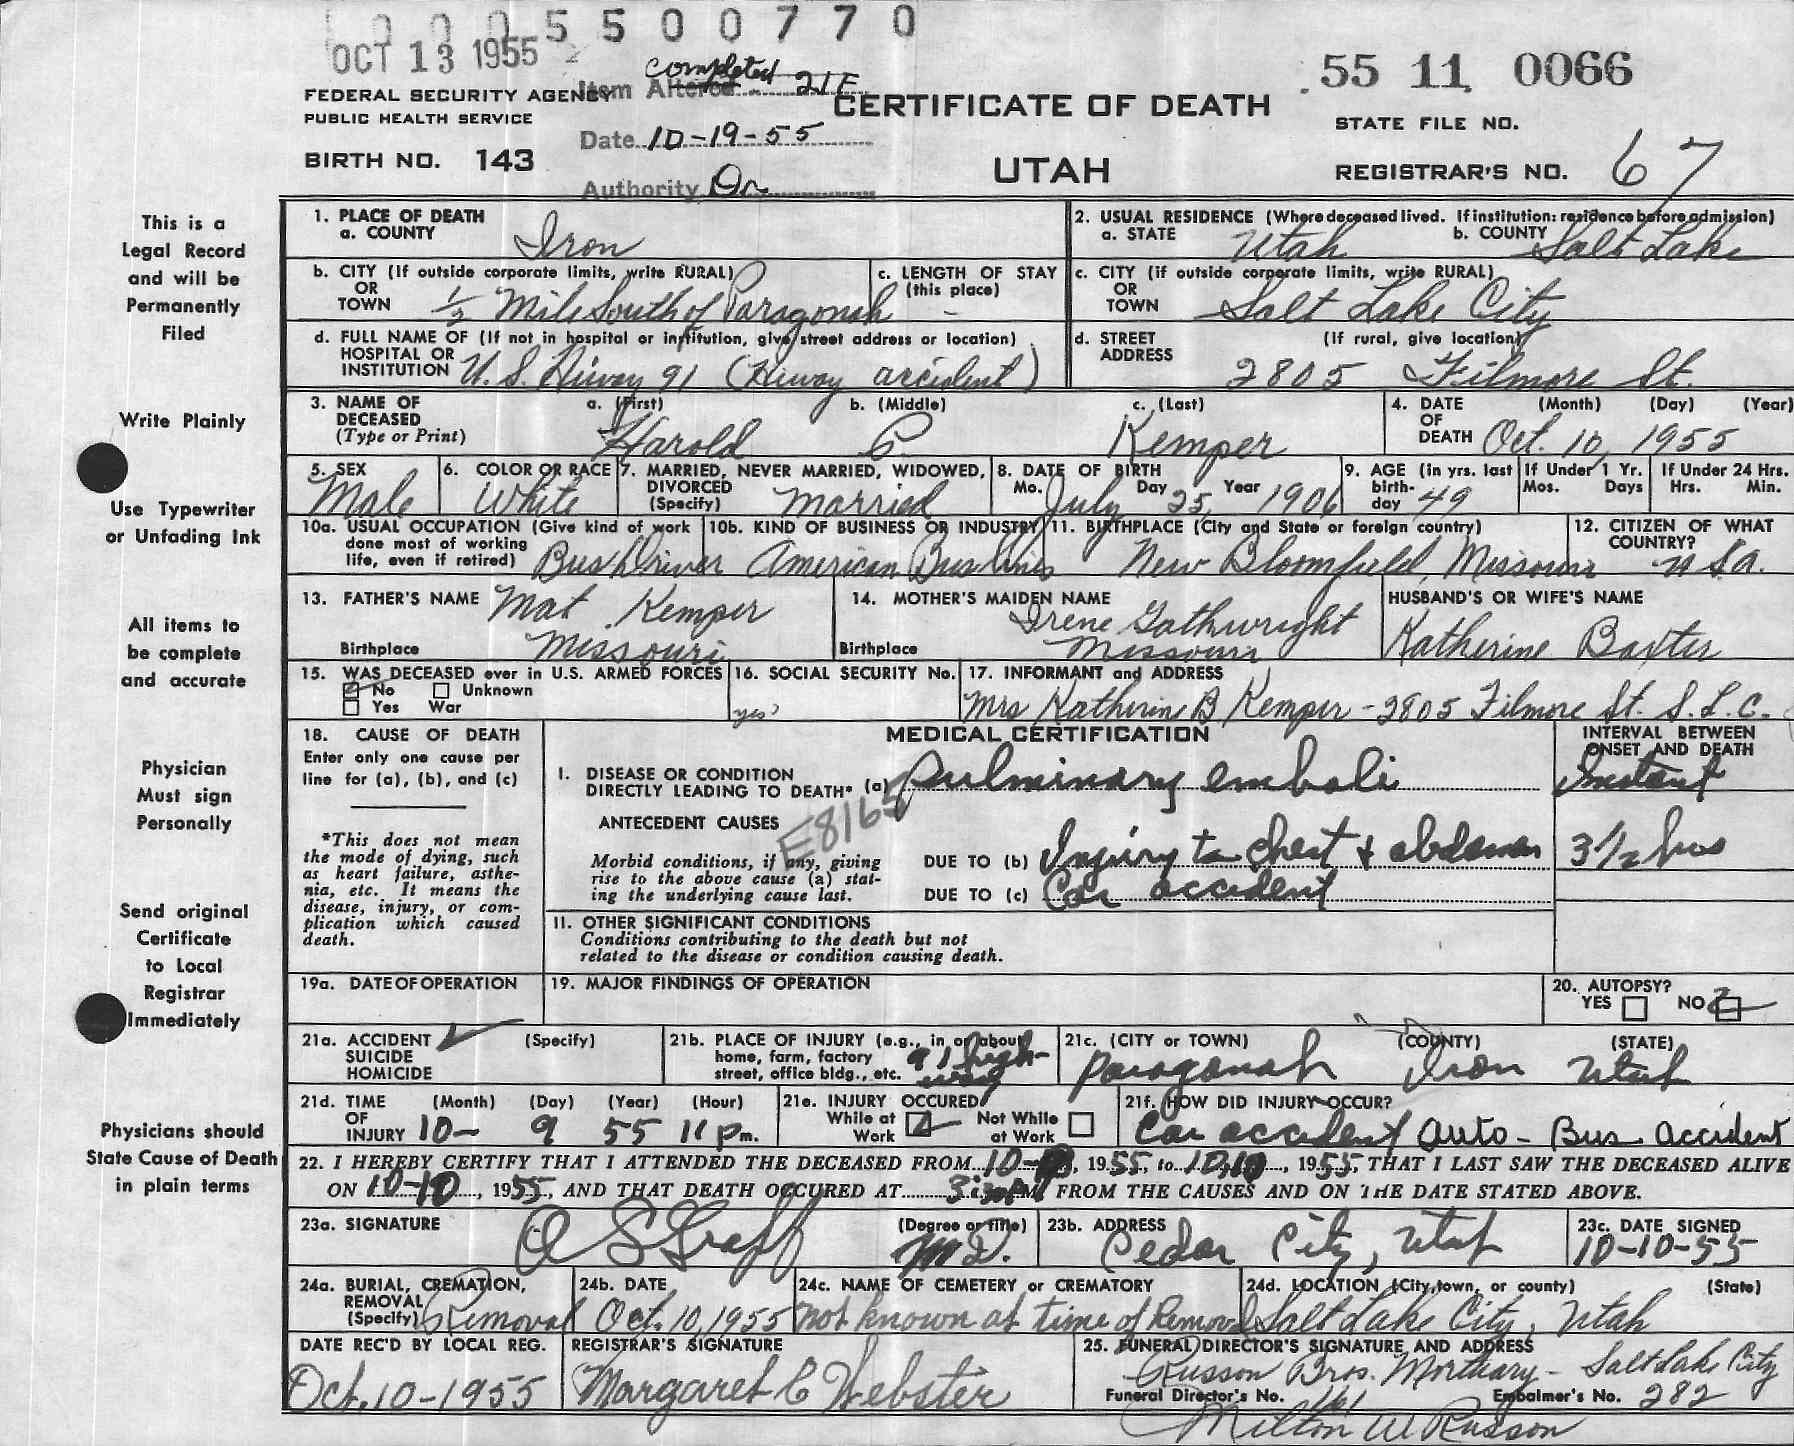 0 0 0 5 5 0 0 7 7 0
OCT 13 1955
completed
Item Altered 21F
.55 11 0066
FEDERAL SECURITY AGENCY
PUBLIC HEALTH SERVICE
CERTIFICATE OF DEATH
STATE FILE NO.
Date 10-19-55
BIRTH NO. 143
UTAH
REGISTRAR'S NO. 67
Authority Dr
This is a
Legal Record
and will be
Permanently
Filed
Write Plainly
Use Typewriter
or Unfading Ink
All items to
be complete
and accurate
Physician
Must sign
Personally
Send original
Certificate
to Local
Registrar
Immediately
Physicians should
State Cause of Death
in plain terms
1. PLACE OF DEATH
a. COUNTY Iron
2. USUAL RESIDENCE (Where deceased lived. If institution: residence before admission)
a. STATE Utah b. COUNTY Salt Lake
b. CITY (If outside corporate limits, write RURAL)
OR
TOWN 1/2 Mile South of Paragonah
c. LENGTH OF STAY
(this place) -
c. CITY (if outside corporate limits, write RURAL)
OR
TOWN Salt Lake City
d. FULL NAME OF (If not in hospital or institution, give street address or location)
HOSPITAL OR
INSTITUTION U.S. Hiway 91 (Hiway accident)
d. STREET (If rural, give location)
ADDRESS 2805 Filmore St.
3. NAME OF DECEASED
(Type or Print)
a. (First) b. (Middle) c. (Last)
Harold C. Kemper
4. DATE OF DEATH (Month) (Day) (Year)
Oct. 10, 1955
5. SEX
Male
6. COLOR OR RACE
White
7. MARRIED, NEVER MARRIED, WIDOWED,
DIVORCED
(Specify) Married
8. DATE OF BIRTH
Mo. July Day 25, Year 1906
9. AGE (in yrs. last
birth-
day 49
If Under 1 Yr.
Mos. Days
If Under 24 Hrs.
Hrs. Min.
10a. USUAL OCCUPATION (Give kind of work
done most of working
life, even if retired) Bus Driver
10b. KIND OF BUSINESS OR INDUSTRY
American Bus lines
11. BIRTHPLACE (City and State or foreign country)
New Bloomfield, Missouri
12. CITIZEN OF WHAT
COUNTRY?
U.S.A.
13. FATHER'S NAME Mat Kemper
Birthplace Missouri
14. MOTHER'S MAIDEN NAME
Irene Gathwright
Birthplace Missouri
HUSBAND'S OR WIFE'S NAME
Katherine Baxter
15. WAS DECEASED ever in U.S. ARMED FORCES
No Unknown
Yes War
16. SOCIAL SECURITY No.
yes
17. INFORMANT and ADDRESS
Mrs Katherine B Kemper - 2805 Filmore St. S.L.C.
18. CAUSE OF DEATH
Enter only one cause per
line for (a), (b), and (c)
*This does not mean
the mode of dying, such
as heart failure, asthe-
nia, etc. It means the
disease, injury, or com-
plication which caused
death.
MEDICAL CERTIFICATION
INTERVAL BETWEEN
ONSET AND DEATH
I. DISEASE OR CONDITION
DIRECTLY LEADING TO DEATH* (a) pulminary emboli
Instant
ANTECEDENT CAUSES
E8165
Morbid conditions, if any, giving
rise to the above cause (a) stat-
ing the underlying cause last.
DUE TO (b) Injury to chest + abdomen
3 1/2 hrs
DUE TO (c) Car accident
11. OTHER SIGNIFICANT CONDITIONS
Conditions contributing to the death but not
related to the disease or condition causing death.
19a. DATE OF OPERATION
19. MAJOR FINDINGS OF OPERATION
20. AUTOPSY?
YES NO
21a. ACCIDENT (Specify)
SUICIDE
HOMICIDE
21b. PLACE OF INJURY (e.g., in or about
home, farm, factory
street, office bldg., etc. 91 high-
way
21c. (CITY or TOWN) (COUNTY) (STATE)
Paragonah Iron Utah
21d. TIME OF INJURY (Month) (Day) (Year) (Hour)
10- 9 55 11 pm.
21e. INJURY OCCURED
While at Work Not While at Work
21f. HOW DID INJURY OCCUR?
Car accident Auto - Bus accident
22. I HEREBY CERTIFY THAT I ATTENDED THE DECEASED FROM 10-, 1955, to 10-10, 1955, THAT I LAST SAW THE DECEASED ALIVE
ON 10-10, 1955, AND THAT DEATH OCCURED AT 3:30 M, FROM THE CAUSES AND ON THE DATE STATED ABOVE.
23a. SIGNATURE (Degree or title)
M.D.
23b. ADDRESS
Cedar City, Utah
23c. DATE SIGNED
10-10-55
24a. BURIAL, CREMATION,
REMOVAL
(Specify) Removal
24b. DATE
Oct. 10, 1955
24c. NAME OF CEMETERY or CREMATORY
not known at time of Removal
24d. LOCATION (City, town, or county) (State)
Salt Lake City, Utah
DATE REC'D BY LOCAL REG.
Oct. 10-1955
REGISTRAR'S SIGNATURE
Margaret C Webster
25. FUNERAL DIRECTOR'S SIGNATURE AND ADDRESS
Russon Bros. Mortuary - Salt Lake City
Funeral Director's No. 161 Embalmer's No. 282
Milton W Russon